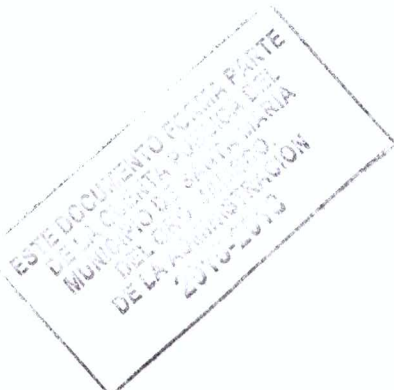 ESTE DOCUMENTO FORMA PARTE
DE LA CUENTA PÚBLICA DEL
MUNICIPIO DE SANTA MARIA
DEL ORO, JALISCO,
DE LA ADMINISTRACION